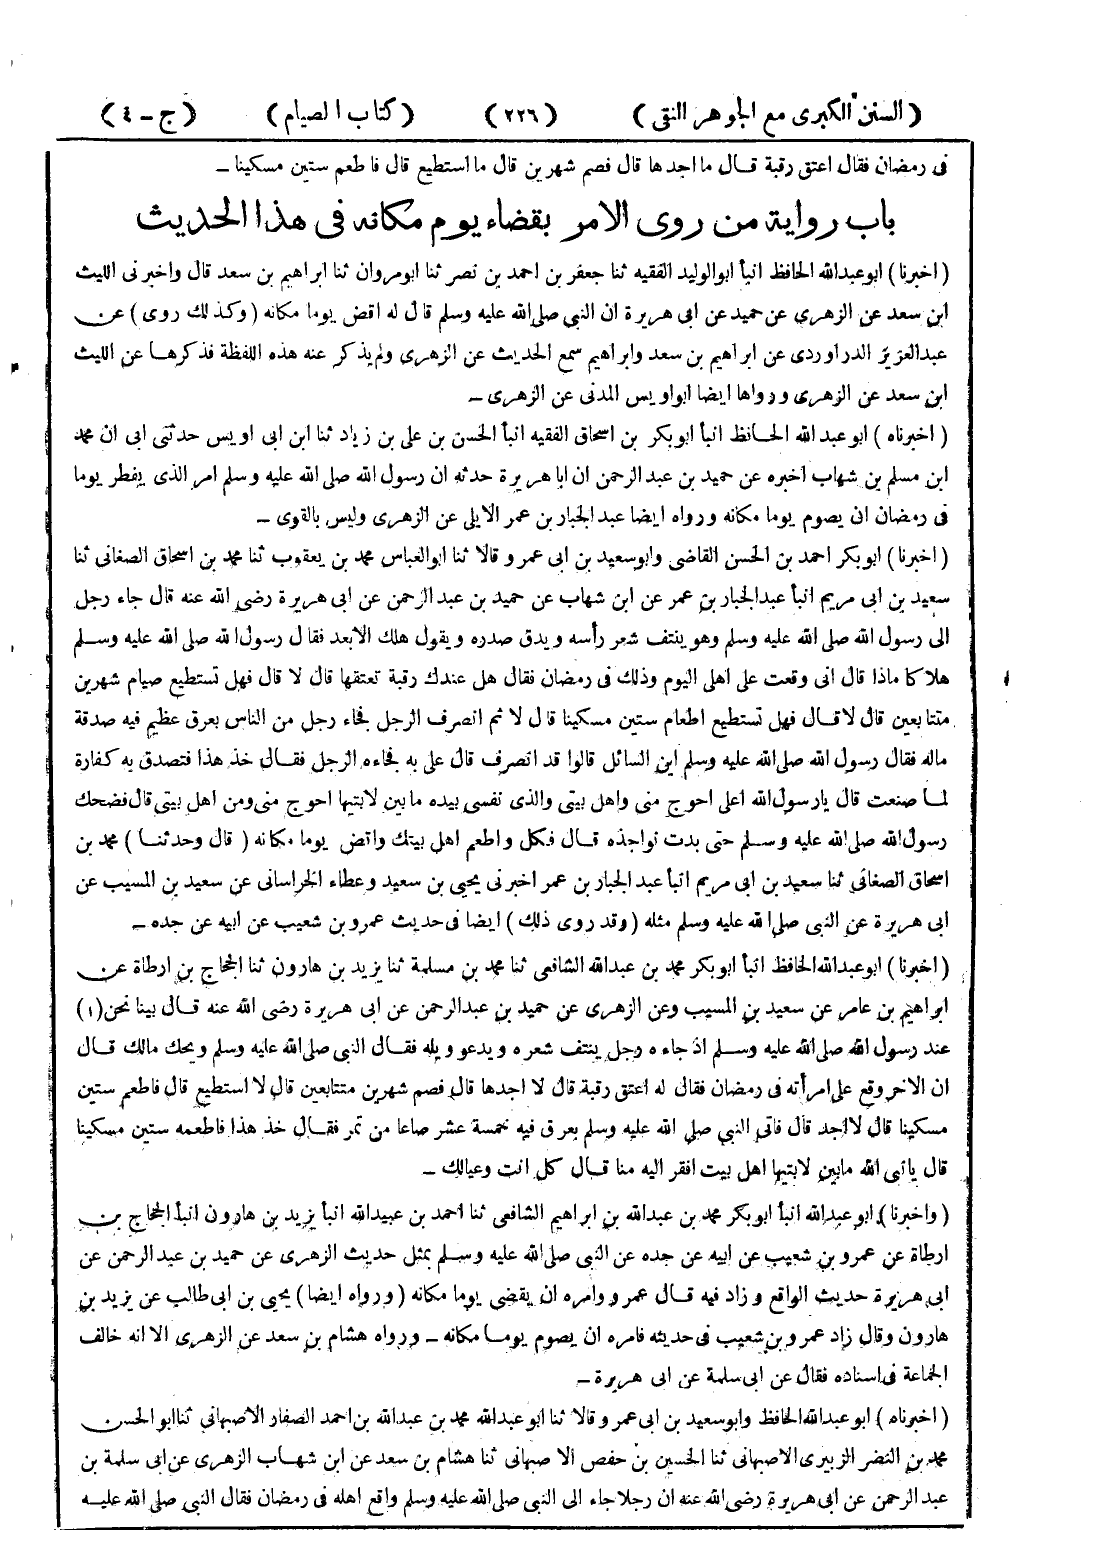 ( السنن الكبرى مع الجوهر النقى ) ( ٢٢٦ ) ( كتاب الصيام ) ( ج - ٤ )
فى رمضان فقال اعتق رقبة قال ما اجدها قال فصم شهرين قال ما استطيع قال فاطعم ستين مسكينا -
باب رواية من روى الامر بقضاء يوم مكانه فى هذا الحديث
( اخبرنا ) ابو عبدالله الحافظ انبأ ابو الوليد الفقيه ثنا جعفر بن احمد بن نصر ثنا ابو مروان ثنا ابراهيم بن سعد قال واخبرنى الليث
ابن سعد عن الزهرى عن حميد عن ابى هريرة ان النبى صلى الله عليه وسلم قال له اقض يوما مكانه ( وكذلك روى ) عن
عبدالعزيز الدراوردى عن ابراهيم بن سعد وابراهيم سمع الحديث عن الزهرى ولم يذكر عنه هذه اللفظة فذكرها عن الليث
ابن سعد عن الزهرى ورواها ايضا ابو اويس المدنى عن الزهرى -
( اخبرناه ) ابو عبد الله الحافظ انبأ ابو بكر بن اسحاق الفقيه انبأ الحسن بن على بن زياد ثنا ابن ابى اويس حدثنى ابى ان محمد
ابن مسلم بن شهاب اخبره عن حميد بن عبد الرحمن ان ابا هريرة حدثه ان رسول الله صلى الله عليه وسلم امر الذى يفطر يوما
فى رمضان ان يصوم يوما مكانه ورواه ايضا عبد الجبار بن عمر الايلى عن الزهرى وليس بالقوى -
( اخبرنا ) ابو بكر احمد بن الحسن القاضى وابو سعيد بن ابى عمرو قالا ثنا ابو العباس محمد بن يعقوب ثنا محمد بن اسحاق الصغانى ثنا
سعيد بن ابى مريم انبأ عبدالجبار بن عمر عن ابن شهاب عن حميد بن عبد الرحمن عن ابى هريرة رضى الله عنه قال جاء رجل
الى رسول الله صلى الله عليه وسلم وهو ينتف شعر رأسه ويدق صدره ويقول هلك الابعد فقال رسول الله صلى الله عليه وسلم
هلاكا ماذا قال انى وقعت على اهلى اليوم وذلك فى رمضان فقال هل عندك رقبة تعتقها قال لا قال فهل تستطيع صيام شهرين
متتابعين قال لا قال فهل تستطيع اطعام ستين مسكينا قال لا ثم انصرف الرجل فجاء رجل من الناس بعرق عظيم فيه صدقة
ماله فقال رسول الله صلى الله عليه وسلم اين السائل قالوا قد انصرف قال على به فجاءه الرجل فقال خذ هذا فتصدق به كفارة
لما صنعت قال يا رسول الله أعلى احوج منى واهل بيتى والذى نفسى بيده ما بين لابتيها احوج منى ومن اهل بيتى قال فضحك
رسول الله صلى الله عليه وسلم حتى بدت نواجذه قال فكل واطعم اهل بيتك واقض يوما مكانه ( قال وحدثنا ) محمد بن
اسحاق الصغانى ثنا سعيد بن ابى مريم انبأ عبد الجبار بن عمر اخبرنى يحيى بن سعيد وعطاء الخراسانى عن سعيد بن المسيب عن
ابى هريرة عن النبى صلى الله عليه وسلم مثله ( وقد روى ذلك ) ايضا فى حديث عمرو بن شعيب عن ابيه عن جده -
( اخبرنا ) ابو عبدالله الحافظ انبأ ابو بكر محمد بن عبدالله الشافعى ثنا محمد بن مسلمة ثنا يزيد بن هارون ثنا الحجاج بن ارطاة عن
ابراهيم بن عامر عن سعيد بن المسيب وعن الزهرى عن حميد بن عبدالرحمن عن ابى هريرة رضى الله عنه قال بينا نحن (١)
عند رسول الله صلى الله عليه وسلم اذ جاءه رجل ينتف شعره ويدعو ويله فقال النبى صلى الله عليه وسلم ويحك مالك قال
ان الاخر وقع على امرأته فى رمضان فقال له اعتق رقبة قال لا اجدها قال فصم شهرين متتابعين قال لا استطيع قال فاطعم ستين
مسكينا قال لا اجد قال فاتى النبى صلى الله عليه وسلم بعرق فيه خمسة عشر صاعا من تمر فقال خذ هذا فاطعمه ستين مسكينا
قال يا نبى الله ما بين لابتيها اهل بيت افقر اليه منا قال كل انت وعيالك -
( واخبرنا ) ابو عبدالله انبأ ابو بكر محمد بن عبدالله بن ابراهيم الشافعى ثنا احمد بن عبيدالله انبأ يزيد بن هارون انبأ الحجاج بن
ارطاة عن عمرو بن شعيب عن ابيه عن جده عن النبى صلى الله عليه وسلم بمثل حديث الزهرى عن حميد بن عبد الرحمن عن
ابى هريرة حديث الواقع وزاد فيه قال عمرو وامره ان يقضى يوما مكانه ( ورواه ايضا ) يحيى بن ابى طالب عن يزيد بن
هارون وقال زاد عمرو بن شعيب فى حديثه فامره ان يصوم يوما مكانه - ورواه هشام بن سعد عن الزهرى الا انه خالف
الجماعة فى اسناده فقال عن ابى سلمة عن ابى هريرة -
( اخبرناه ) ابو عبدالله الحافظ وابو سعيد بن ابى عمرو قالا ثنا ابو عبدالله محمد بن عبدالله بن احمد الصفار الاصبهانى ثنا ابو الحسن
محمد بن النضر الزبيرى الاصبهانى ثنا الحسين بن حفص الاصبهانى ثنا هشام بن سعد عن ابن شهاب الزهرى عن ابى سلمة بن
عبد الرحمن عن ابى هريرة رضى الله عنه ان رجلا جاء الى النبى صلى الله عليه وسلم واقع اهله فى رمضان فقال النبى صلى الله عليه